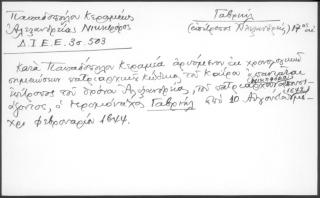 Παπαδόπουλου Κεραμέως
Ἀλεξανδρείας Νικηφόρος
Δ.Ι.Ε.Ε. 3σ. 503
Γαβριήλ
(ἐπίτροπος Ἀλεξανδρείας) 17ος αἰ.
Κατὰ Παπαδόπουλον Κεραμέα ἀρυόμενον ἐκ χρονογραφικοῦ
σημειώματος πατριαρχικοῦ κώδικος τοῦ Καΐρου
ἐπίτροπος τοῦ θρόνου Ἀλεξανδρείας, τοῦ πατριάρχου
ὁ ἱερομόναχος Γαβριήλ ἀπὸ 10 Αὐγούστου
1643 μέ-
χρι Φεβρουαρίου 1644.